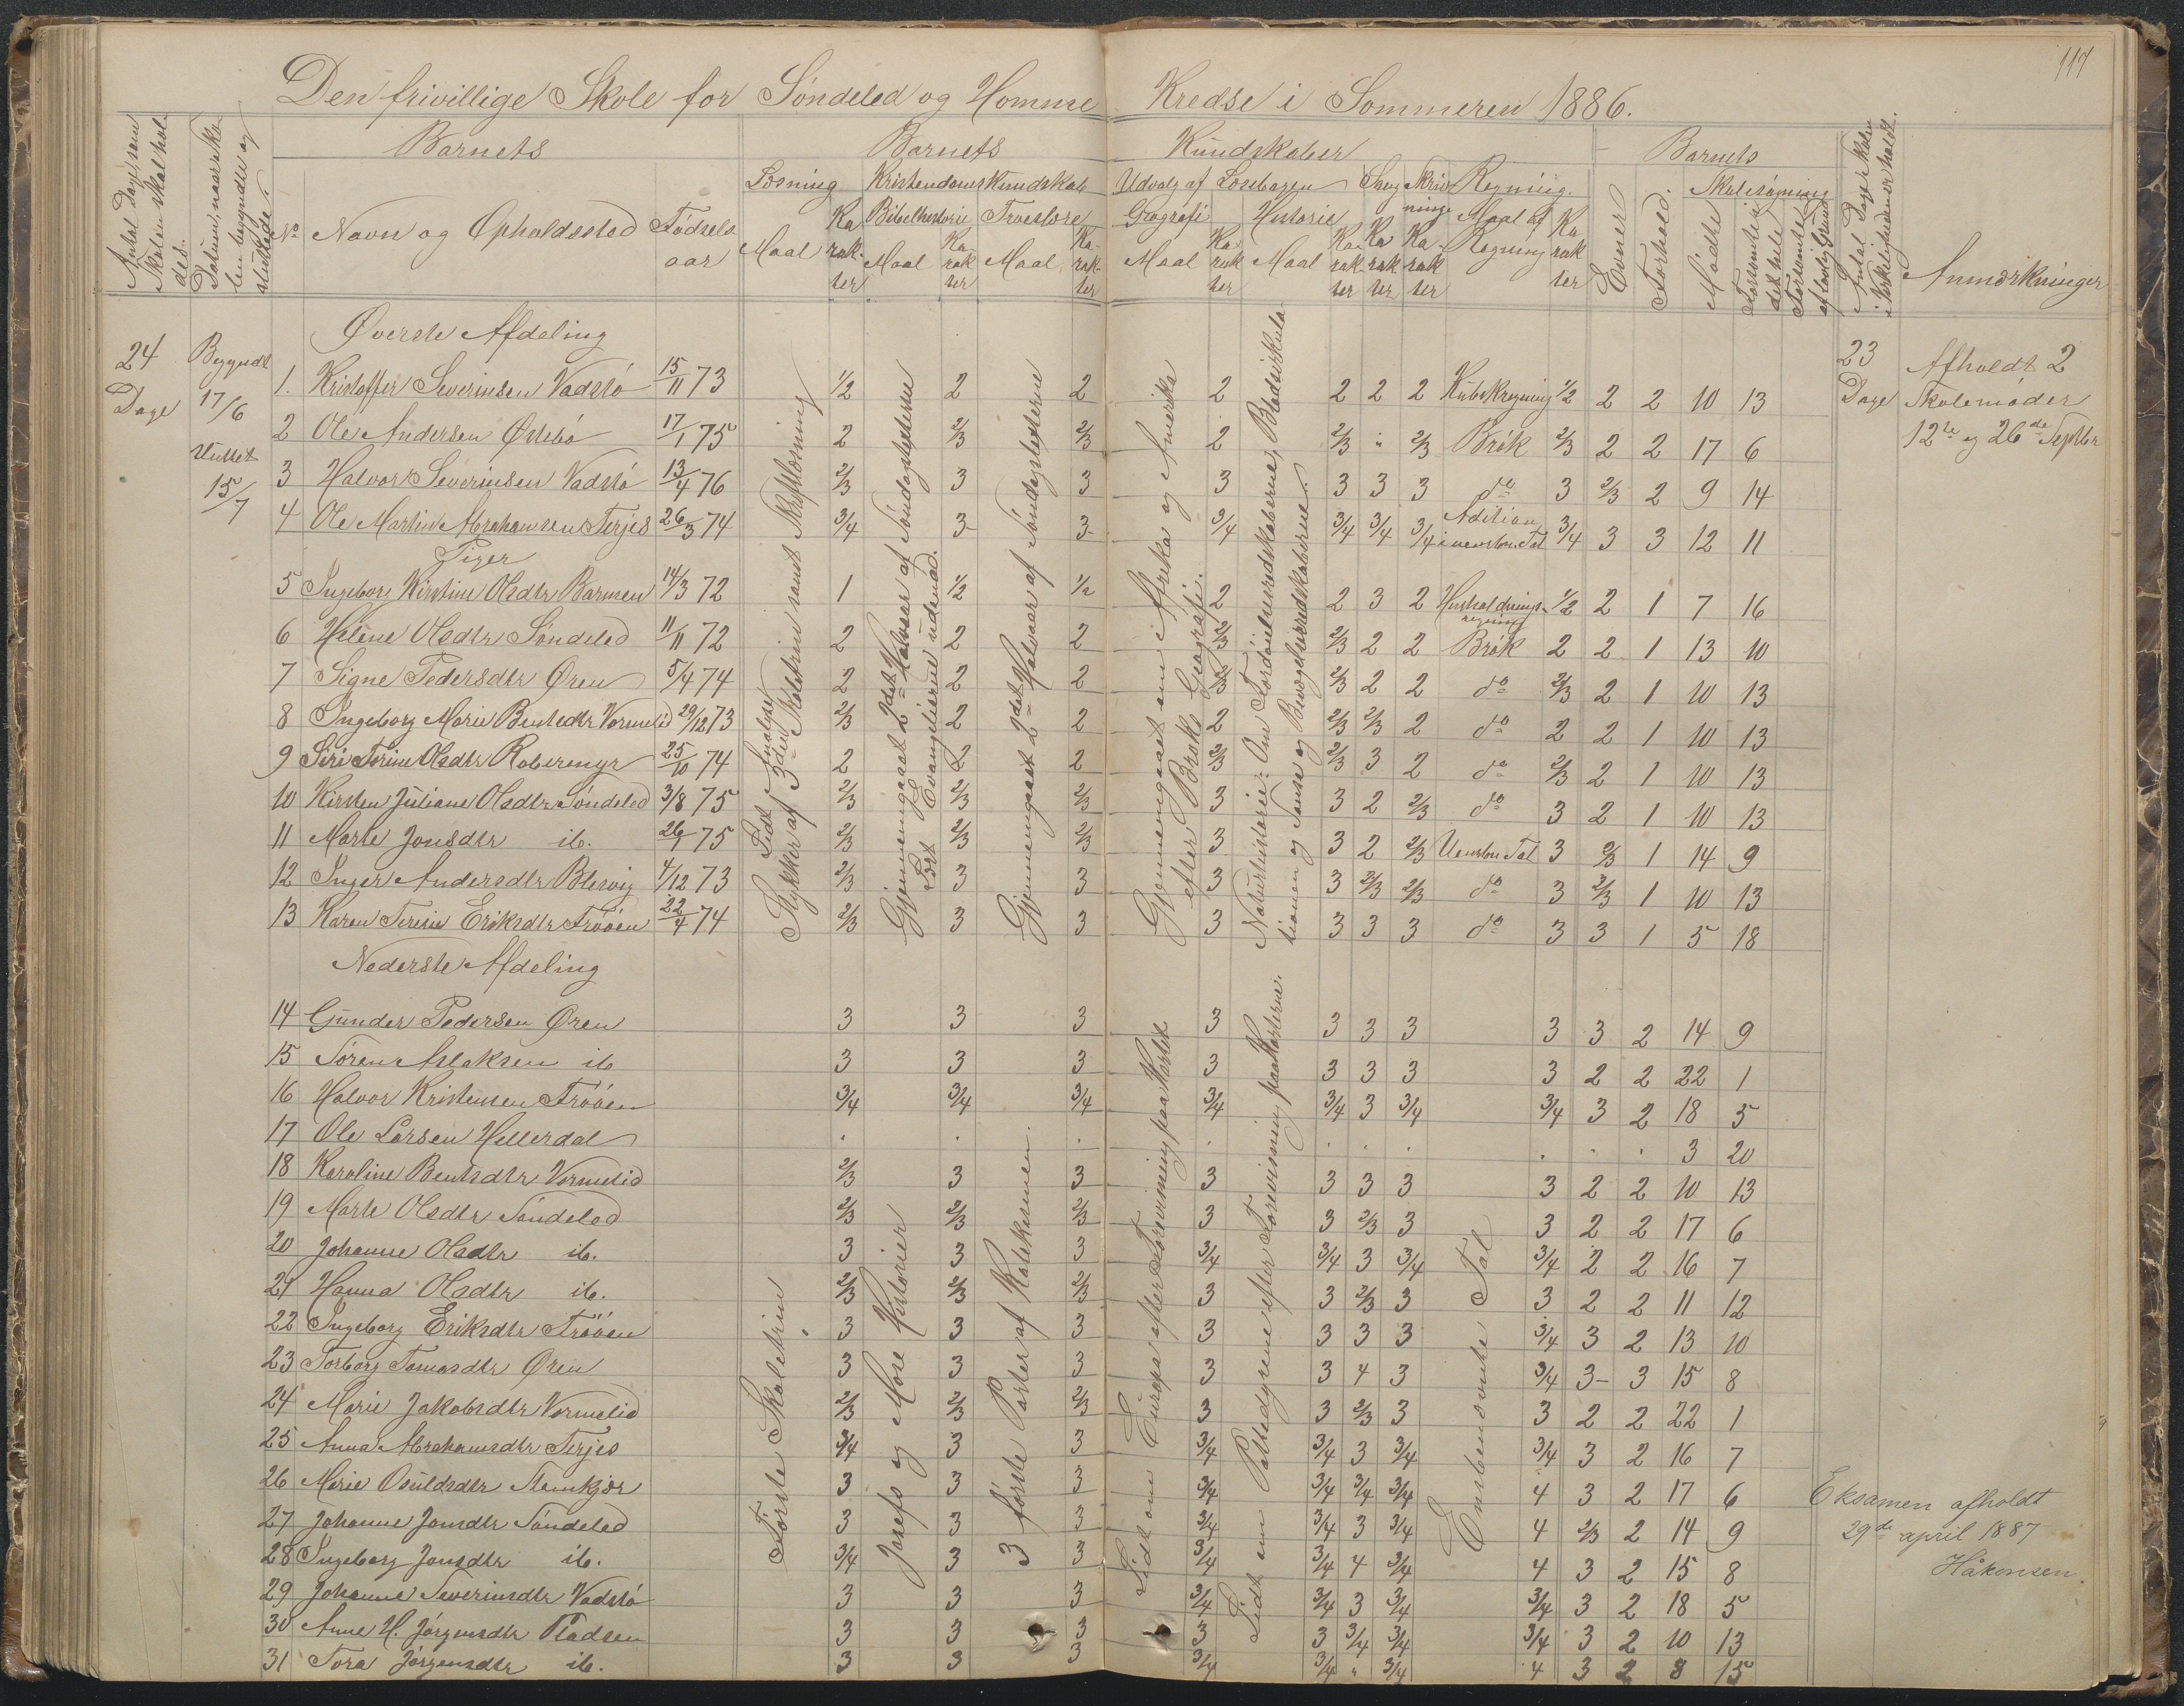 117
Den frivillige Skole for Søndeled og Homme Kredse i Sommeren 1886.
Antal Dage, som Skolen skal holdes.
Datum, naar Skolen begyndte og sluttede.
Barnets
Barnets Kundskaber
Barnets
Antal Dage Skolen i Virkeligheden er holdt.
No Navn og Opholdssted Fødsels aar
Læsning Kristendomskundskab Udvalg af Læsebogen Sang Skrivning Regning.
Bibelhistorie Troeslære Geografi Historie
Maal Karakter Maal Karakter Maal Karakter Maal Karakter Maal Karakter Karakter Karakter Maal af Regning Karakter
Evner Forhold. Skolesøgning
Mødte Forsømte i det hele Forsømte af lovlig Grund
Anmærkninger
Øverste Afdeling
24 Dage
Begyndt 17/6
Sluttet 15/7
23 Dage
Afholdt 2
Skolemøder
12te og 26de Septbr
1. Kristoffer Severinsen Vadstø 15/11 73 1/2 2 2 2 2 2 2 Kubikregning 1/2 2 2 10 13
2 Ole Andersen Østebø 17/1 75 2 2/3 2/3 2 2/3 " 2/3 Brøk 2/3 2 2 17 6
3 Halvor Severinsen Vadstø 13/4 76 2/3 3 3 3 3 3 3 do 3 2/3 2 9 14
4 Ole Martin Abrahamsen Terjes 26/3 74 3/4 3- 3- 3/4 3/4 3/4 3/4 Adition i uensben. Tal 3/4 3 3 12 11
Piger
5 Ingeborg Kirstine Olsdtr Barmen 14/3 72 1 1/2 1/2 2 2 3 2 Husholdningsregning 1/2 2 1 7 16
6 Helene Olsdtr Søndeled 11/11 72 2 2 2 2/3 2/3 2 2 Brøk 2 2 1 13 10
7 Signe Pedersdtr Øren 5/4 74 2 2 2 2/3 2/3 2 2 do 2/3 2 1 10 13
8 Ingeborg Marie Bentsdtr Vormelid 29/12 73 2/3 2 2 2 2/3 2/3 2 do 2 2 1 10 13
9 Siri Torine Olsdtr Roberemyr 25/10 74 2 2 2 2/3 2/3 3 2 do 2/3 2 1 10 13
10 Kirsten Juliane Olsdtr Søndeled 3/8 75 2/3 2/3 2/3 3 3 2 2/3 do 3 2 1 10 13
11 Marte Jonsdtr ib. 26/1 75 2/3 2/3 2/3 3 3 2 2/3 Uensben Tal 3 2/3 1 14 9
12 Inger Andersdtr Blesvig 4/12 73 2/3 3 3 3 3 2/3 2/3 do 3 2/3 1 10 13
13 Karen Terese Eriksdtr Trøoen 22/4 74 2/3 3 3 3 3 3 3 do 3 3 1 5 18
Lidt Analyse
Stykker af 3die Skoletrin samt Skriftlæsning
Gjennemgaaet 2det Halvaar af Søndagstexterne
Lært Evangelierne udenad.
Gjennemgaaet 2det Halvaar af Søndagstexterne
Gjennemgaaet om i Afrika og Amerika
efter Broks Geografi.
Naturhistorie: Om Fordøielsesredskaberne, Blodcirkulationen og Sanse og Bevægelsesredskaberne.
Nederste Afdeling
14 Gunder Pedersen Øren 3 3 3 3 3 3 3 3 3 2 14 9
15 Søren Aslaksen ib 3 3 3 3 3 3 3 3 2 2 22 1
16 Halvor Kristensen Trøoen 3/4 3/4 3/4 3/4 3/4 3 3/4 3/4 3 2 18 5
17 Ole Larsen Hellerdal . . . . . . . . . . 3 20
18 Karoline Bentsdtr Vormelid 2/3 3 3 3 3 3 3 3 2 2 10 13
19 Marte Olsdtr Søndeled 2/3 2/3 2/3 3 3 2/3 3 3 2 2 17 6
20 Johanne Olsdtr ib. 3 3 3 3/4 3/4 3 3/4 3/4 2 2 16 7
21 Hanna Olsdtr ib. 2/3 2/3 2/3 3 3 2/3 3 3 2 2 11 12
22 Ingeborg Eriksdtr Trøoen 3 3 3 3 3 3 3 3/4 3 2 13 10
23 Torborg Tomasdtr Øren 3 3 3 3 3 4 3 3/4 3- 3 15 8
24 Marie Jakobsdtr Vormelid 2/3 2/3 2/3 3 3 2/3 3 3 2 2 22 1
25 Anna Abrahamsdtr Terjes 3/4 3 3 3/4 3/4 3 3/4 3/4 3 2 16 7
26 Marie Osuldsdtr Stemkjær 3 3 3 3/4 3/4 3/4 3/4 4 3 2 17 6
27 Johanne Jonsdtr Søndeled 3 3 3 3/4 3/4 3 3/4 4 2/3 2 14 9
28 Ingeborg Jonsdtr ib. 3/4 3 3 3/4 3/4 4 3/4 4 3 2 15 8
29 Johanne Severinsdtr Vadstø 3 3 3 3/4 3/4 3 3/4 3/4 3 2 18 5
30 Anne H. Jørgensdtr Pladsen 3 3 3 3 3 3/4 3/4 3/4 3 2 10 13
31 Tora Jørgensdtr ib. 3 3 3 3/4 3/4 " 3/4 4 3 2 8 15
Første Skoletrin
Josefs og Mose Historier
3 første Parter af Katekismen.
Lidt om Europa efter Forevisning paa Kartet
Lidt om Pattedyrene efter Forevisning paa Karterne.
Ensbenævnte Tal
Eksamen afholdt
29de april 1887
Håkonsen.